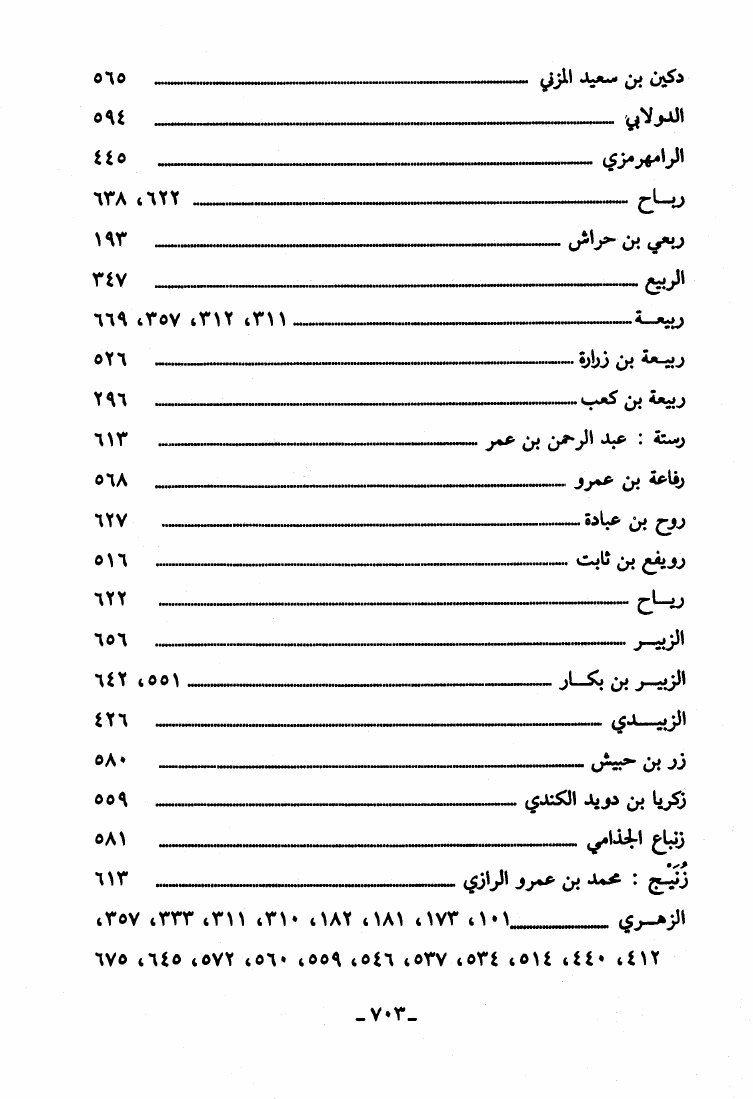 دكين بن سعيد المزني ٥٦٥
الدولابي ٥٩٤
الرامهرمزي ٤٤٥
ربـاح ٦٢٢، ٦٣٨
ربعي بن حراش ١٩٣
الربيع ٣٤٧
ربيعـة ٣١١، ٣١٢، ٣٥٧، ٦٦٩
ربيـعة بن زرارة ٥٢٦
ربيعة بن كعب ٢٩٦
رستة : عبد الرحمن بن عمر ٦١٣
رفاعة بن عمرو ٥٦٨
روح بن عبادة ٦٢٧
رويفع بن ثابت ٥١٦
ريـاح ٦٢٢
الزبيـر ٦٥٦
الزبيـر بن بكـار ٥٥١، ٦٤٢
الزبيـدي ٤٢٦
زر بن حبيش ٥٨٠
زكريا بن دويد الكندي ٥٥٩
زنباع الجذامي ٥٨١
زُنَيْـج : محمد بن عمرو الرازي ٦١٣
الزهـري ١٠١، ١٧٣، ١٨١، ١٨٢، ٣١٠، ٣١١، ٣٣٣، ٣٥٧،
٤١٢، ٤٤٠، ٥١٤، ٥٣٤، ٥٣٧، ٥٤٦، ٥٥٩، ٥٦٠، ٥٧٢، ٦٤٥، ٦٧٥
ـ ٧٠٣ ـ